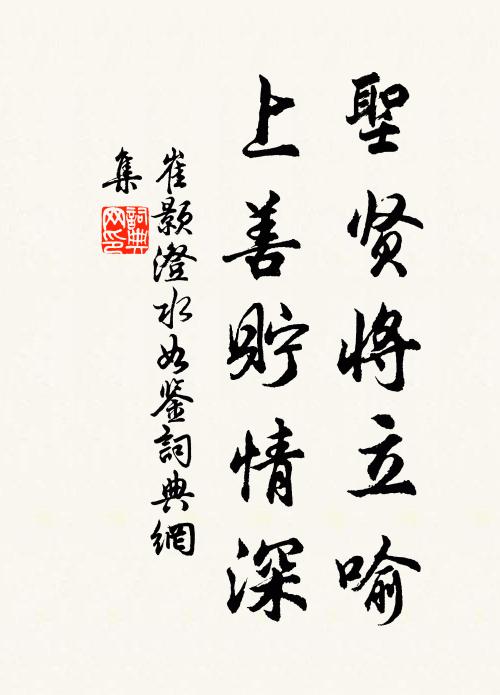 聖贤將立喻
上善貯情深
崔颢澄水如鉴詞典網
集
詞典
网印